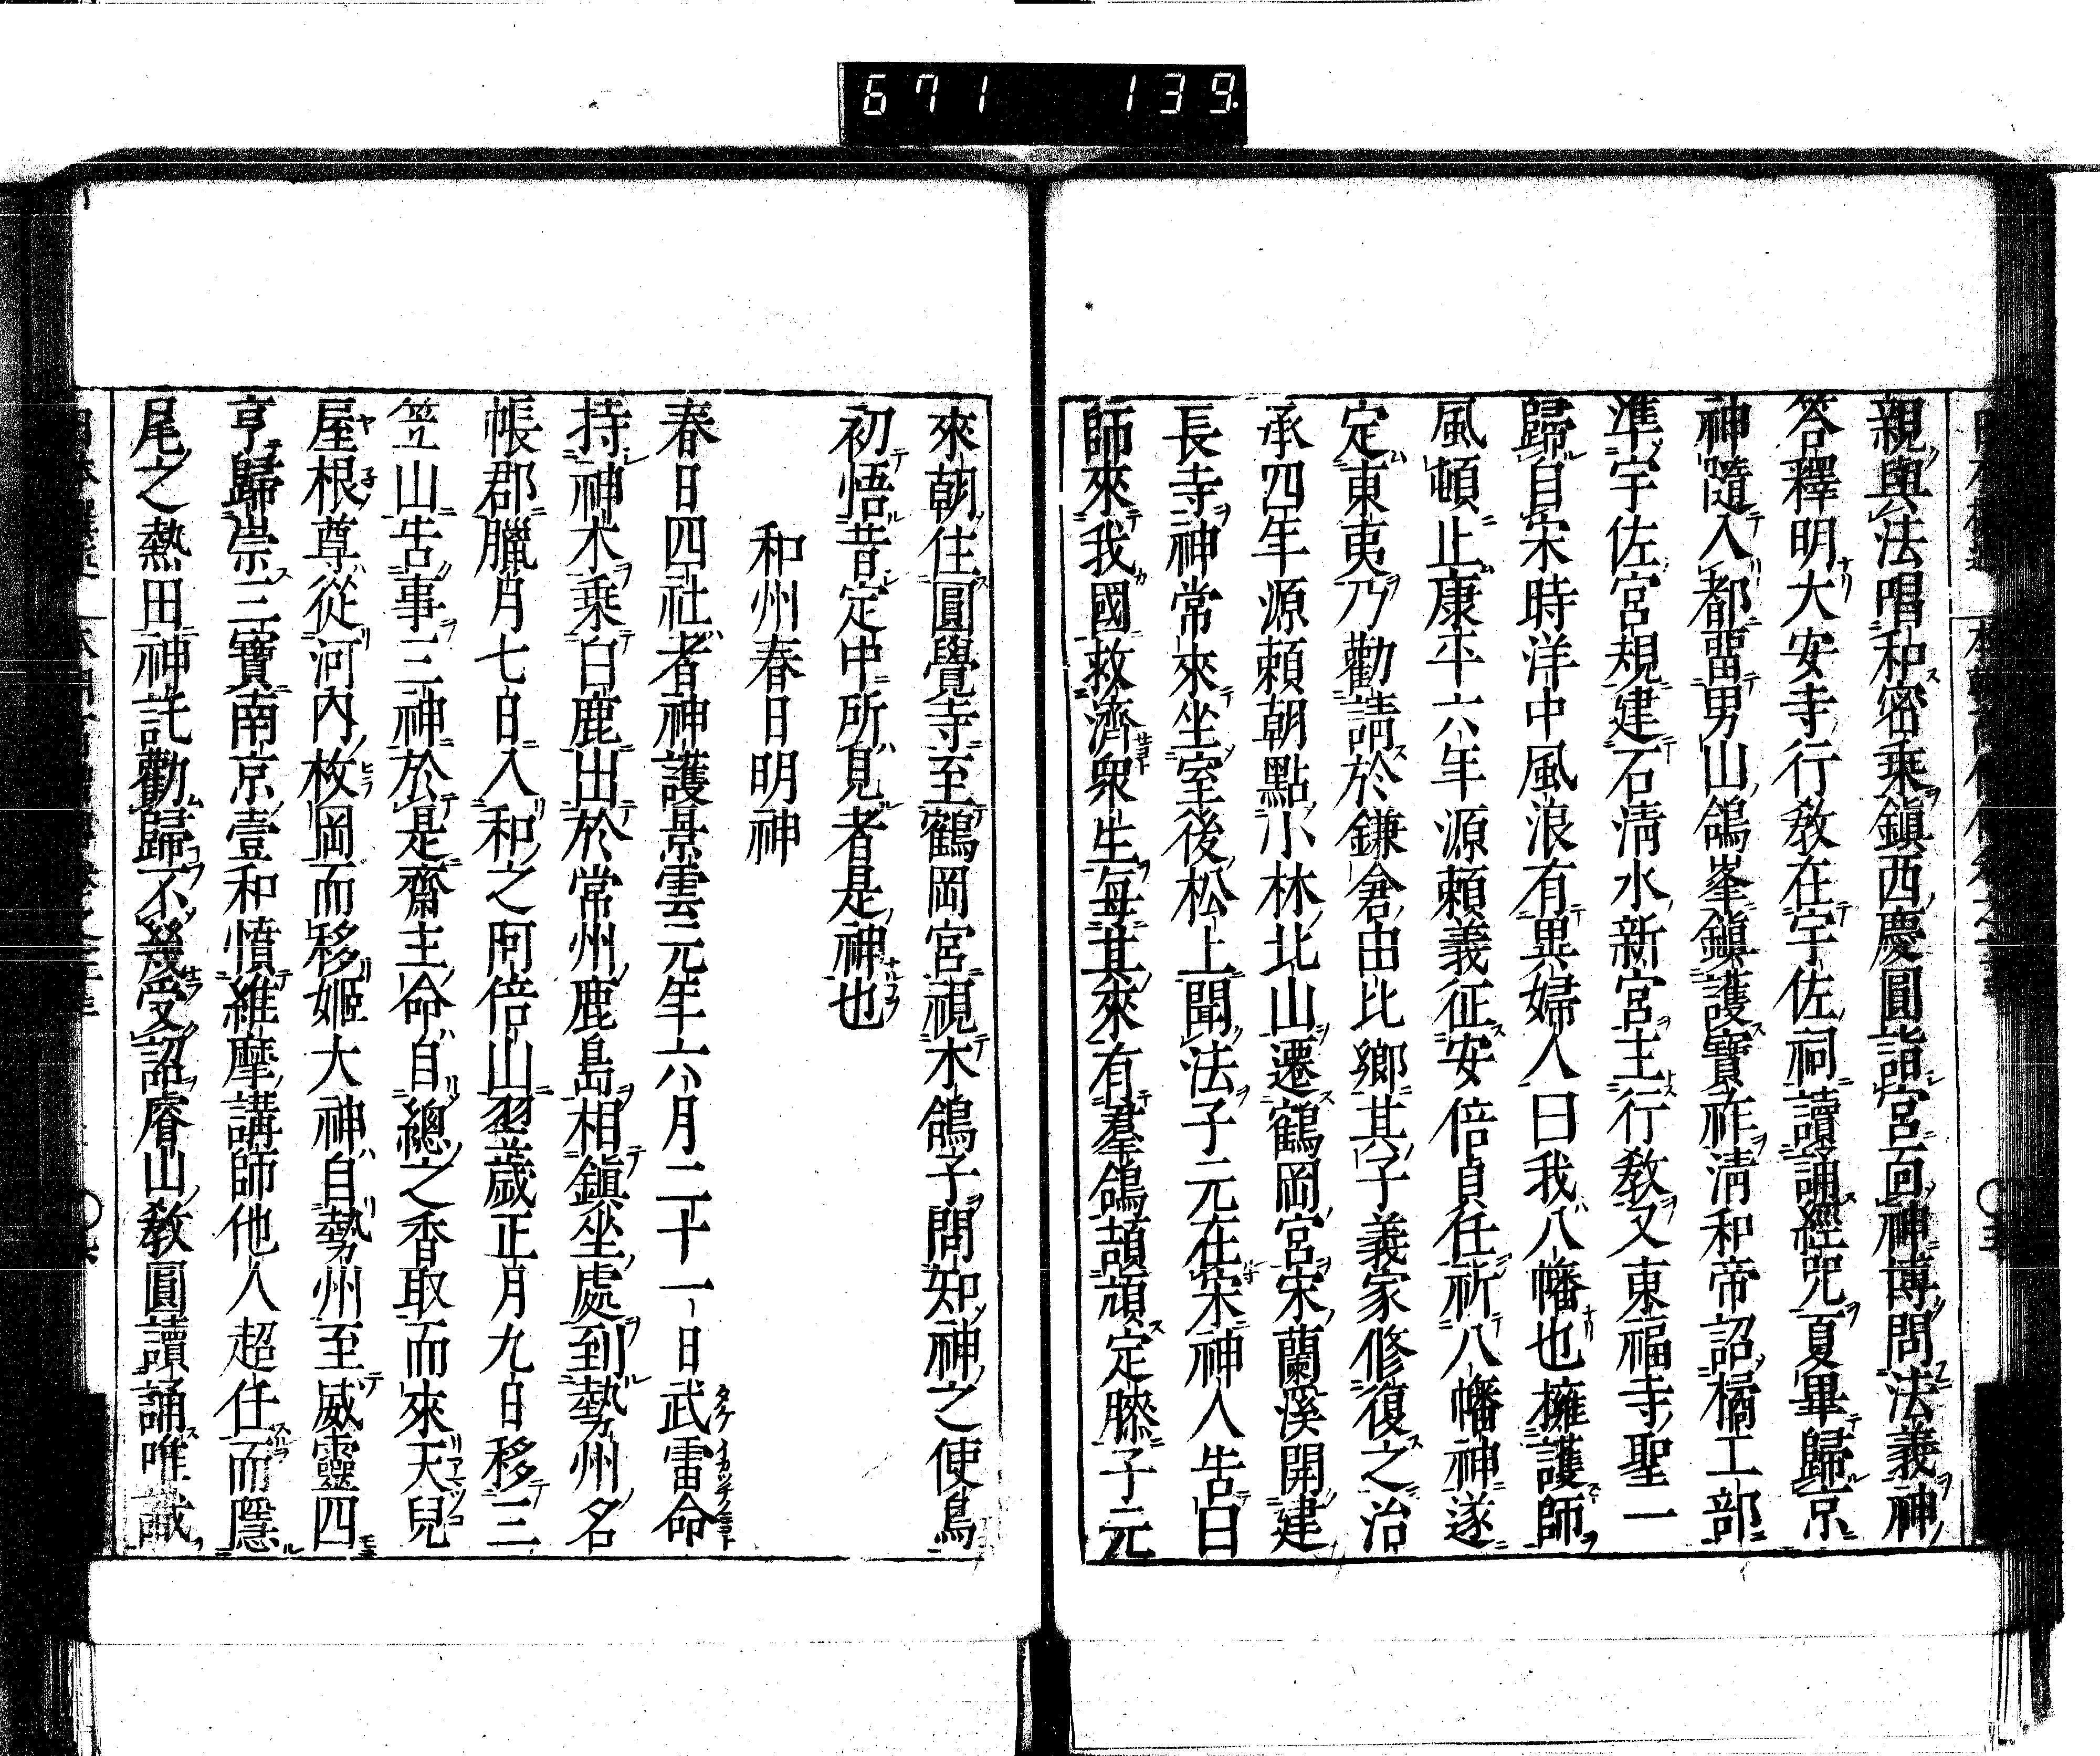 671 139.
親與法唱和密乗鎭西慶圓詣宮面神博問法義神
答釋明大安寺行教在宇佐祠讀誦經咒夏畢歸京
神隨入都畱男山鴿峯鎭護寶祚淸和帝詔橘工部
準宇佐宮規建石淸水新宮主行教又東福寺聖一
歸自宋時洋中風浪有異婦人曰我八幡也擁護師
風頓止康平六年源賴義征安倍貞任祈八幡神遂
定東夷乃勸請於鎌倉由比鄕其子義家修復之治
承四年源賴朝點小林北山遷鶴岡宮宋蘭溪開建
長寺神常來坐室後松上聞法子元在宋神人告曰
師來我國救濟衆生每其來有羣鴿頡頏定膝子元
來朝住圓覺寺至鶴岡宮視木鴿子問知神之使鳥
初悟昔定中所見者是神也
和州春日明神
春日四社者神護景雲元年六月二十一日武雷命
持神木乗白鹿出於常州鹿島相鎭坐處到勢州名
帳郡臘月七日入和之阿倍山翌歲正月九日移三
笠山告事三神於是齋主命自總之香取而來天兒
屋根尊從河內枚岡而移姬大神自勢州至威靈四
亨歸崇三寶南京壹和憤維摩講師他人超任而隱
尾之熱田神託勸歸不幾受詔睿山敎圓讀誦唯識